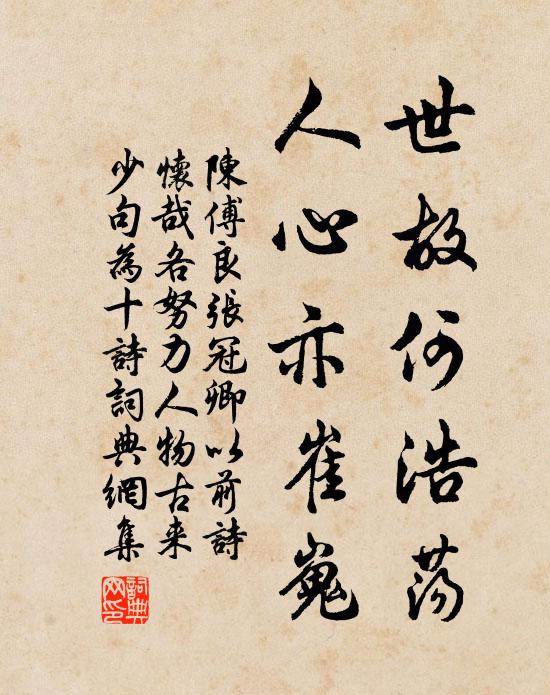 世故何浩荡
人心亦崔嵬
陳傅良張冠卿以前詩
懷哉各努力人物古来
少句為十詩詞典網集
詞典网印